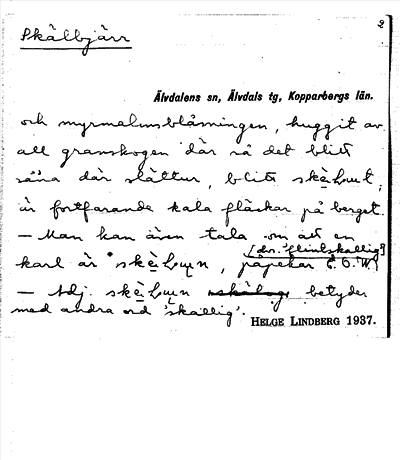 Skålbjärr
2
Älvdalens sn, Älvdals tg, Kopparbergs län.
och myrmalmsblåsningen, huggit av
all granskogen där så det blitt
såna där slättur, blitt
är fortfarande kala fläckar på berget.
— Man kan även tala om att en
[dvs. flintskallig]
karl är "skɛ̀, påpekar E.O.W.
— Adj. betyder
med andra ord 'skallig'.
HELGE LINDBERG 1937.